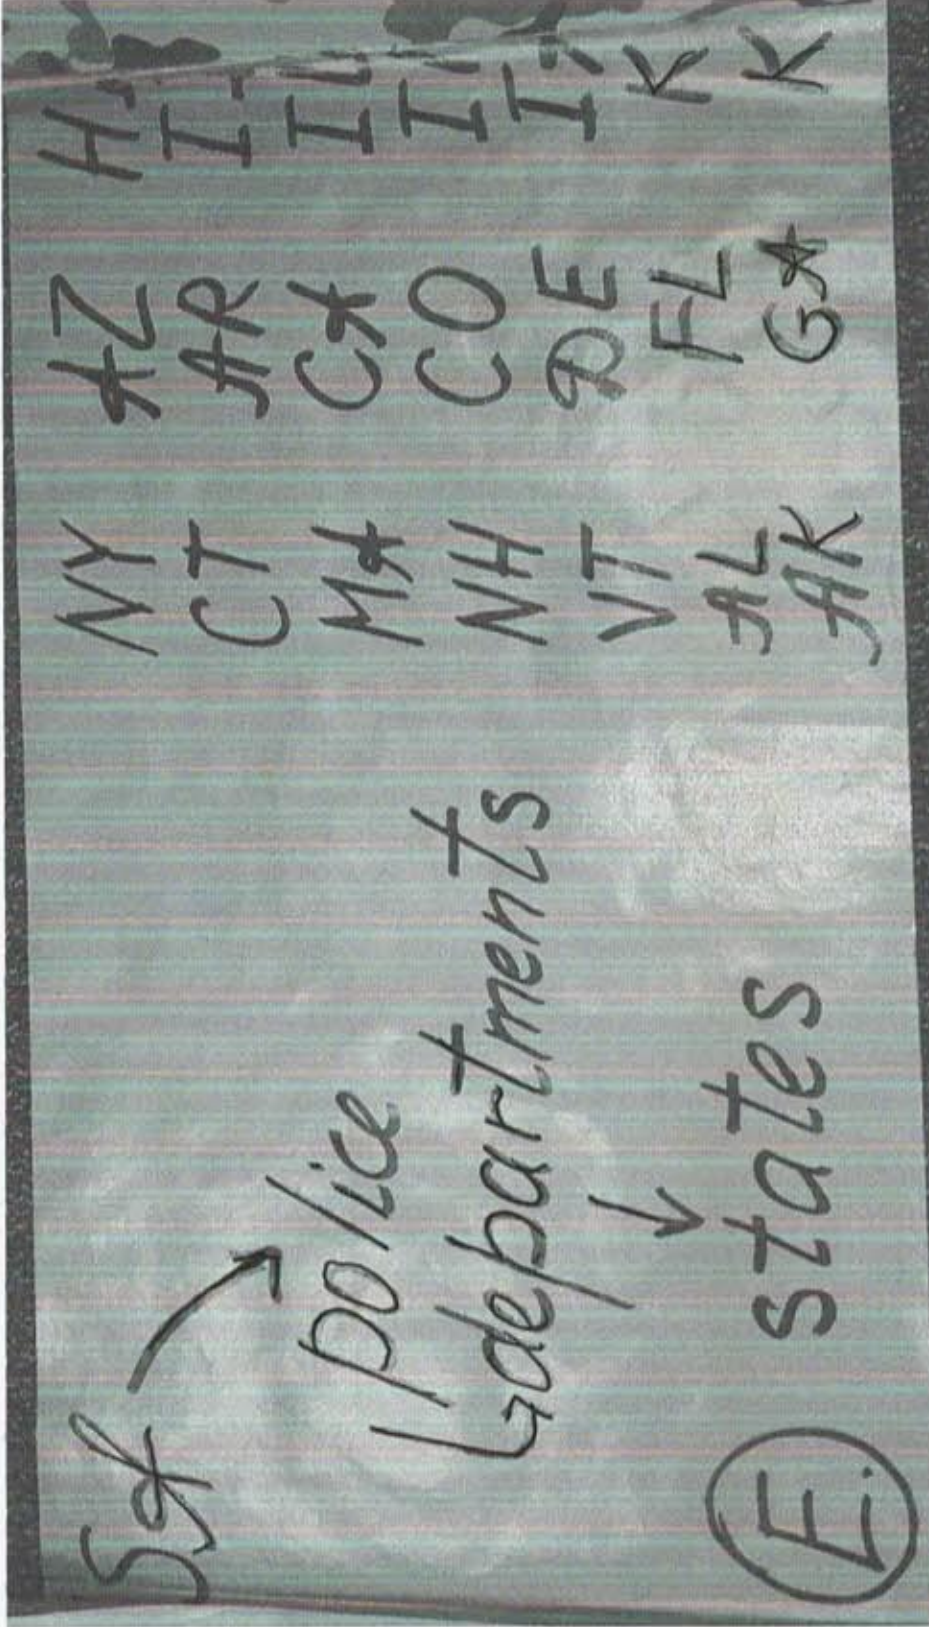 SA →
police
↳ departments
↓
states
E.
NY
CT
MA
NH
VT
AL
AK
AZ
AR
CA
CO
DE
FL
GA
IL